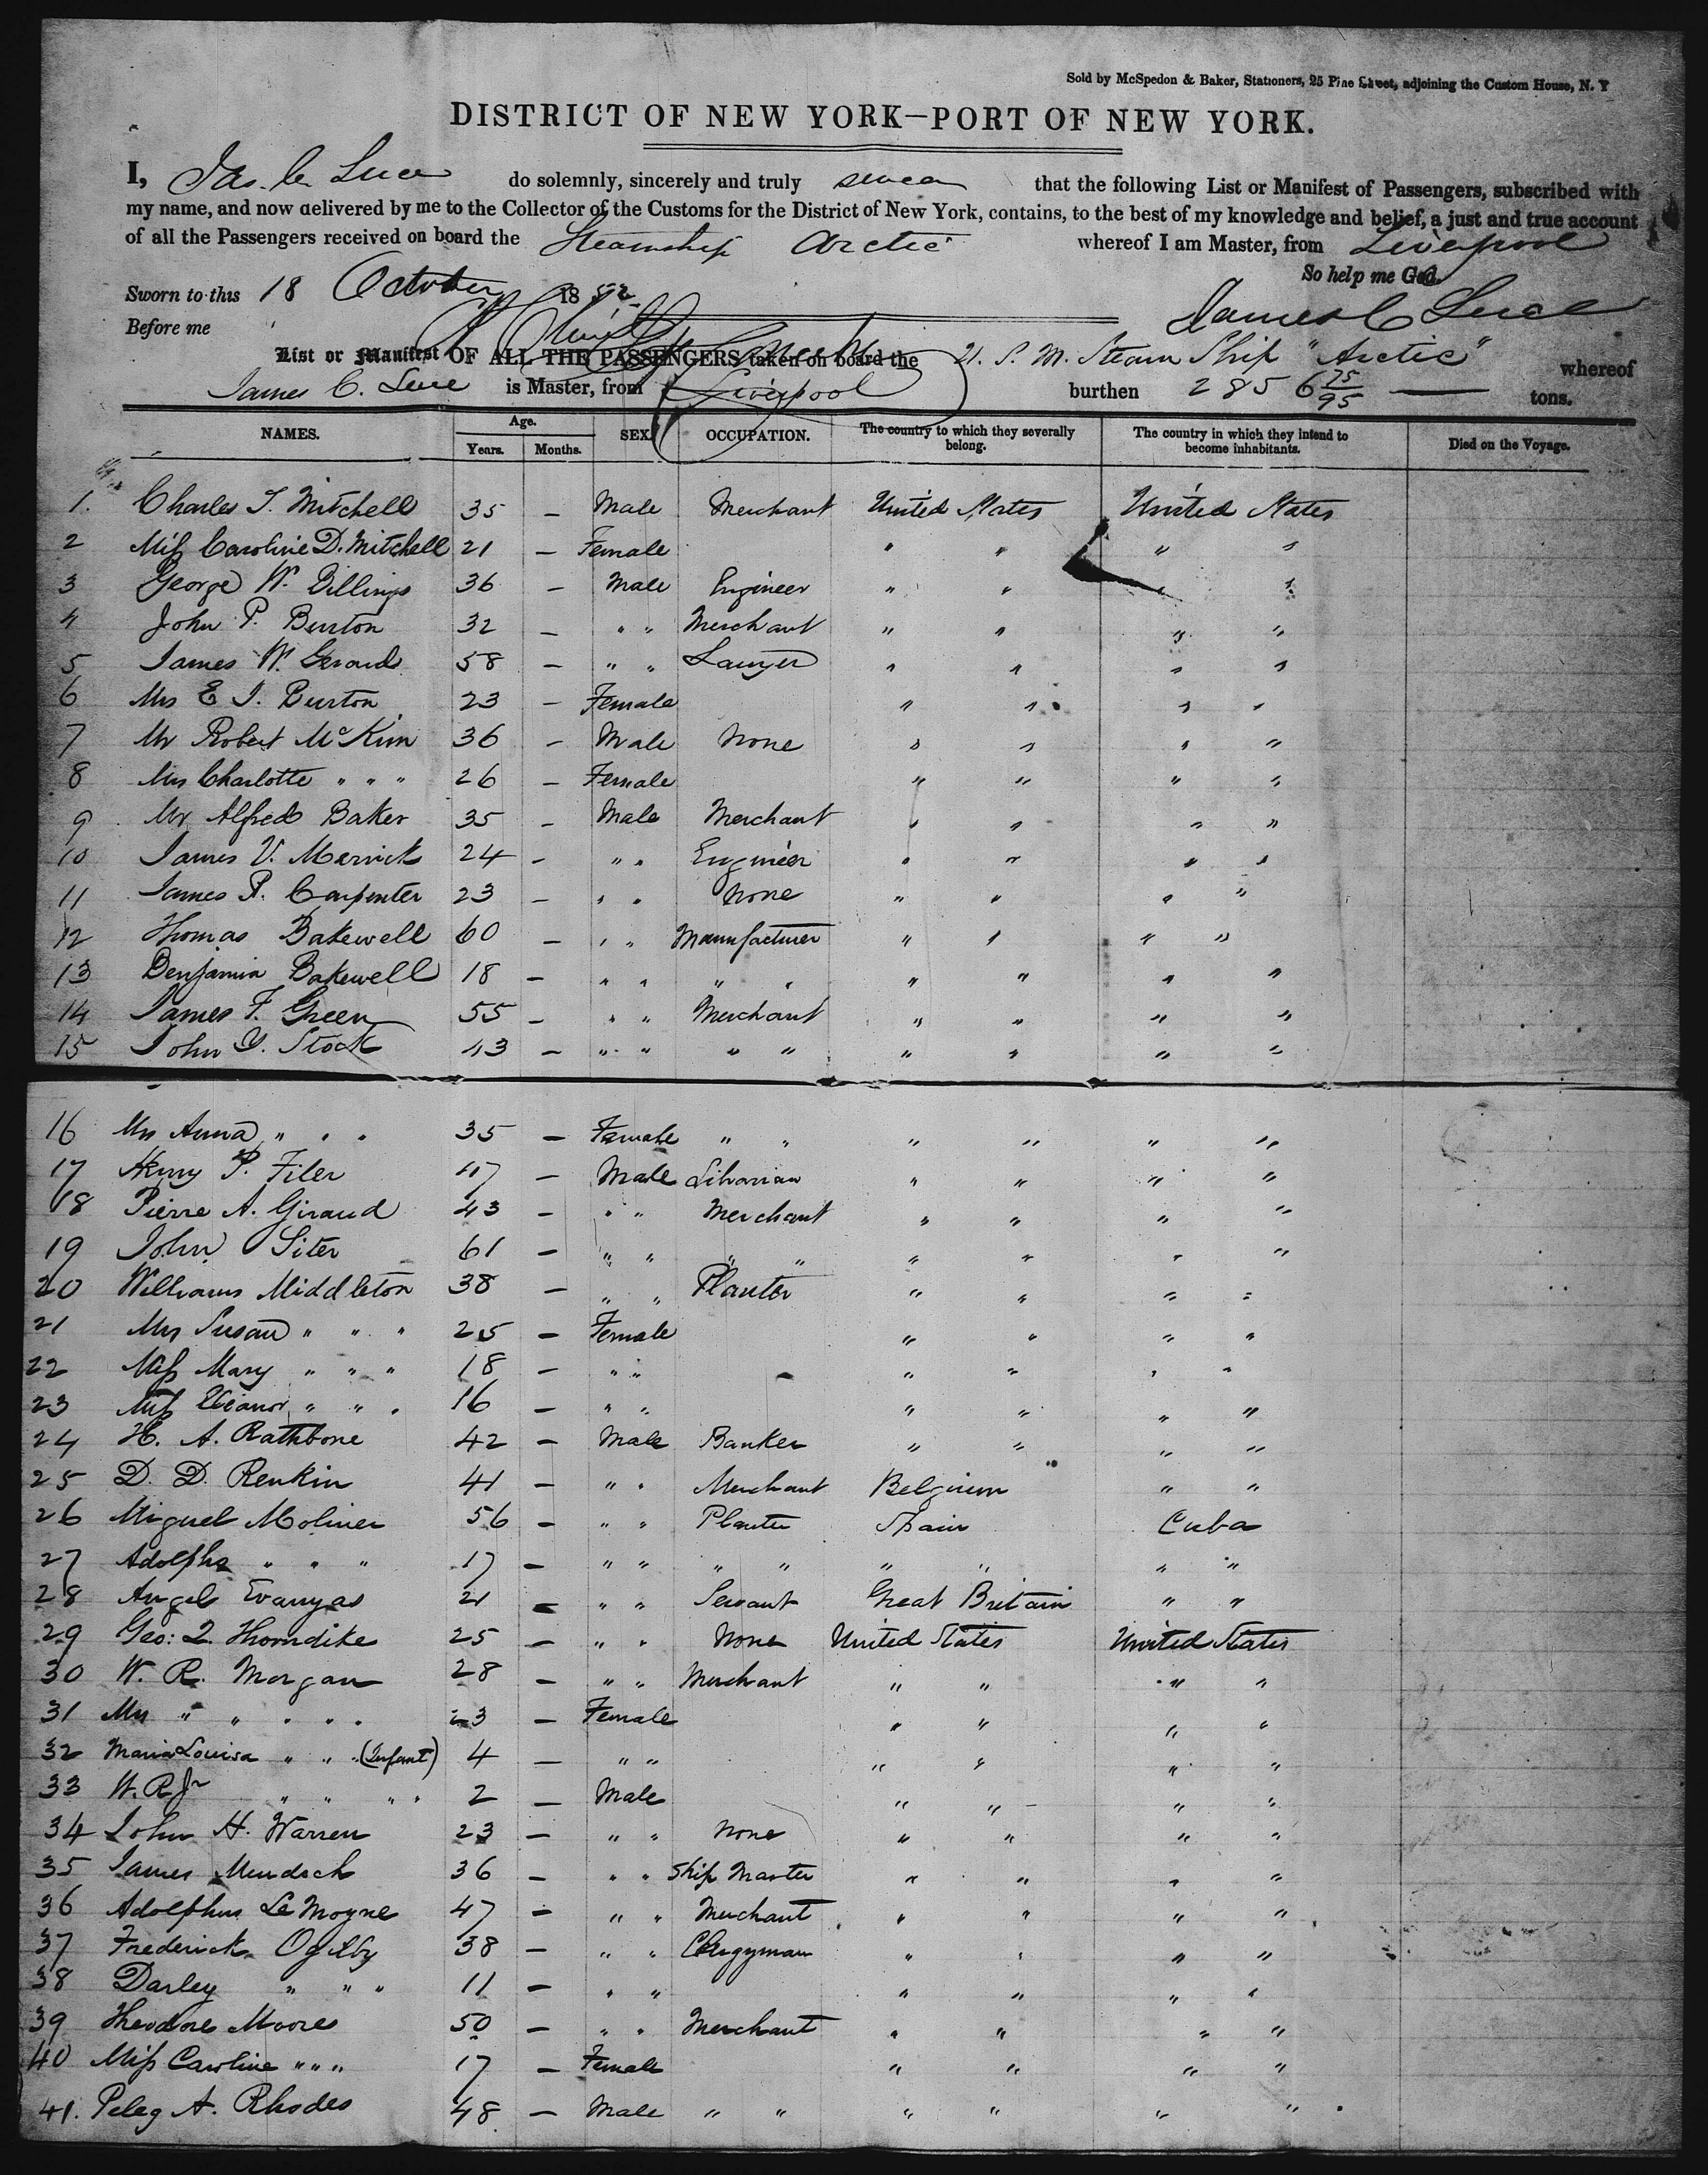 Sold by McSpedon & Baker, Stationers, 25 Pine Street, adjoining the Custom House, N. Y
DISTRICT OF NEW YORK—PORT OF NEW YORK.
I, Jas. C. Luce do solemnly, sincerely and truly swear that the following List or Manifest of Passengers, subscribed with
my name, and now delivered by me to the Collector of the Customs for the District of New York, contains, to the best of my knowledge and belief, a just and true account
of all the Passengers received on board the Steamship Arctic whereof I am Master, from Liverpool
So help me God.
Sworn to this 18 October 1852
James C Luce
Before me
List or Manifest OF ALL THE PASSENGERS taken on board the U. S. M. Steam Ship "Arctic" whereof
James C. Luce is Master, from Liverpool burthen 2856 75/95 tons.
NAMES. Age. Years. Months. SEX. OCCUPATION. The country to which they severally belong. The country in which they intend to become inhabitants. Died on the Voyage.
1. Charles T. Mitchell 35 — Male Merchant United States United States
2 Miss Caroline D. Mitchell 21 — Female " " " "
3 George W. Billings 36 — Male Engineer " " " "
4 John P. Burton 32 — " " Merchant " " " "
5 James W. Gerard 58 — " " Lawyer " " " "
6 Mrs E J. Burton 23 — Female " " " "
7 Mr Robert McKim 36 — Male None " " " "
8 Mrs Charlotte " " " 26 — Female " " " "
9 Mr Alfred Baker 35 — Male Merchant " " " "
10 James V. Merrick 24 — " " Engineer " " " "
11 James P. Carpenter 23 — " " None " " " "
12 Thomas Bakewell 60 — " " Manufacturer " " " "
13 Benjamin Bakewell 18 — " " " " " " " "
14 James F. Green 55 — " " Merchant " " " "
15 John Y. Stock 43 — " " " " " " " "
16 Mrs Anna " " " 35 — Female " " " " " "
17 Henry P. Filer 47 — Male Librarian " " " "
18 Pierre A. Giraud 43 — " " Merchant " " " "
19 John Siter 61 — " " " " " " " "
20 Williams Middleton 38 — " " Planter " " " "
21 Mrs Susan " " " 25 — Female " " " "
22 Miss Mary " " " 18 — " " " " " "
23 Miss Eleanor " " " 16 — " " " " " "
24 H. A. Rathbone 42 — Male Banker " " " "
25 D. D. Renkin 41 — " " Merchant Belgium " "
26 Miguel Molinier 56 — " " Planter Spain Cuba
27 Adolpho " " " 17 — " " " " " " " "
28 Angel Evanyas 21 — " " Servant Great Britain " "
29 Geo: Q. Thorndike 25 — " " None United States United States
30 W. R. Morgan 28 — " " Merchant " " " "
31 Mrs " " " " " 23 — Female " " " "
32 Maria Louisa " " " (Infant) 4 — " " " " " "
33 W. R Jr " " " " 2 — Male " " " "
34 John H. Warren 23 — " " None " " " "
35 James Murdoch 36 — " " Ship Master " " " "
36 Adolphus Le Moyne 47 — " " Merchant " " " "
37 Frederick Ogilby 38 — " " Clergyman " " " "
38 Darley " " " 11 — " " " " " "
39 Theodore Moores 50 — " " Merchant " " " "
40 Miss Caroline " " " 17 — Female " " " "
41. Peleg A. Rhodes 48 — Male " " " " " "